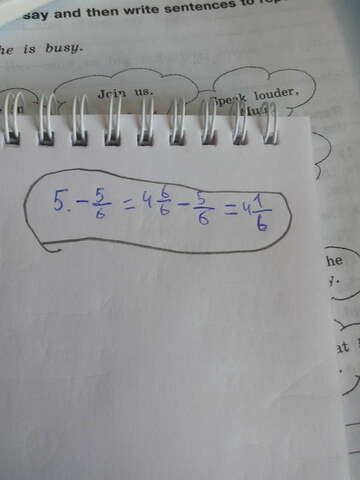 say and then write sentences to
he is busy.
Join us.
Speak louder,
5. - 5/6 = 4 6/6 - 5/6 = 4 1/6
he
y.
at